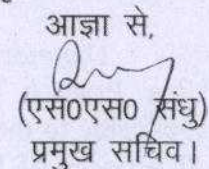 आज्ञा से,
(एस0एस0 संधु)
प्रमुख सचिव।